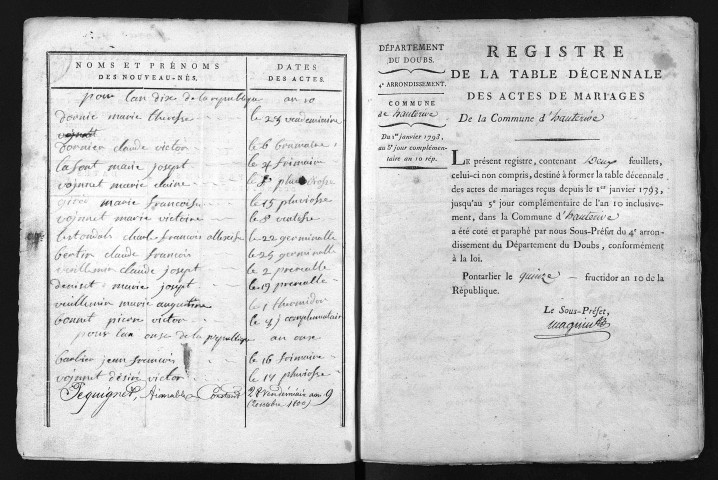 NOMS ET PRÉNOMS
DES NOUVEAU-NÉS.
DATES
DES ACTES.
pour lan dixe de la republique an 10
dornie marie therese le 23 vendemiaire
dornier claude victor le 6 brumaire
lafont marie josept le 4 frimaire
vojnnet marie claine le 8 pluviosse
marie francoise le 15 pluviosse
vojnnet marie victoire le 8 vantose
charle francois le 22 germinalle
bertin claude francois le 25 germinalle
vuillemin claude josept le 2 preralle
deniset marie josept le 19 preralle
vuillemin marie augustine le 1 thermidor
bonnet pierre victor le 4 j conplimentair
pour lan onze de la republique an onze
barbier jean francois le 16 frimaire
vojnnet désiré victor le 17 pluviosse
Pequignet, Aimable Constant 28 Vendémiaire an 9
(Octobre 1800)
DÉPARTEMENT
DU DOUBS.
4e ARRONDISSEMENT.
COMMUNE
de hauterive
Du 1er janvier 1793,
au 5e jour complémen-
taire an 10 rép.
REGISTRE
DE LA TABLE DÉCENNALE
DES ACTES DE MARIAGES
De la Commune d'hauterive
LE présent registre, contenant Deux feuillets,
celui-ci non compris, destiné à former la table décennale
des actes de mariages reçus depuis le 1er janvier 1793,
jusqu'au 5e jour complémentaire de l'an 10 inclusive-
ment, dans la Commune d'hauterive
a été coté et paraphé par nous Sous-Préfet du 4e arron-
dissement du Département du Doubs, conformément
à la loi.
Pontarlier le quinze fructidor an 10 de la
République.
Le Sous-Préfet,